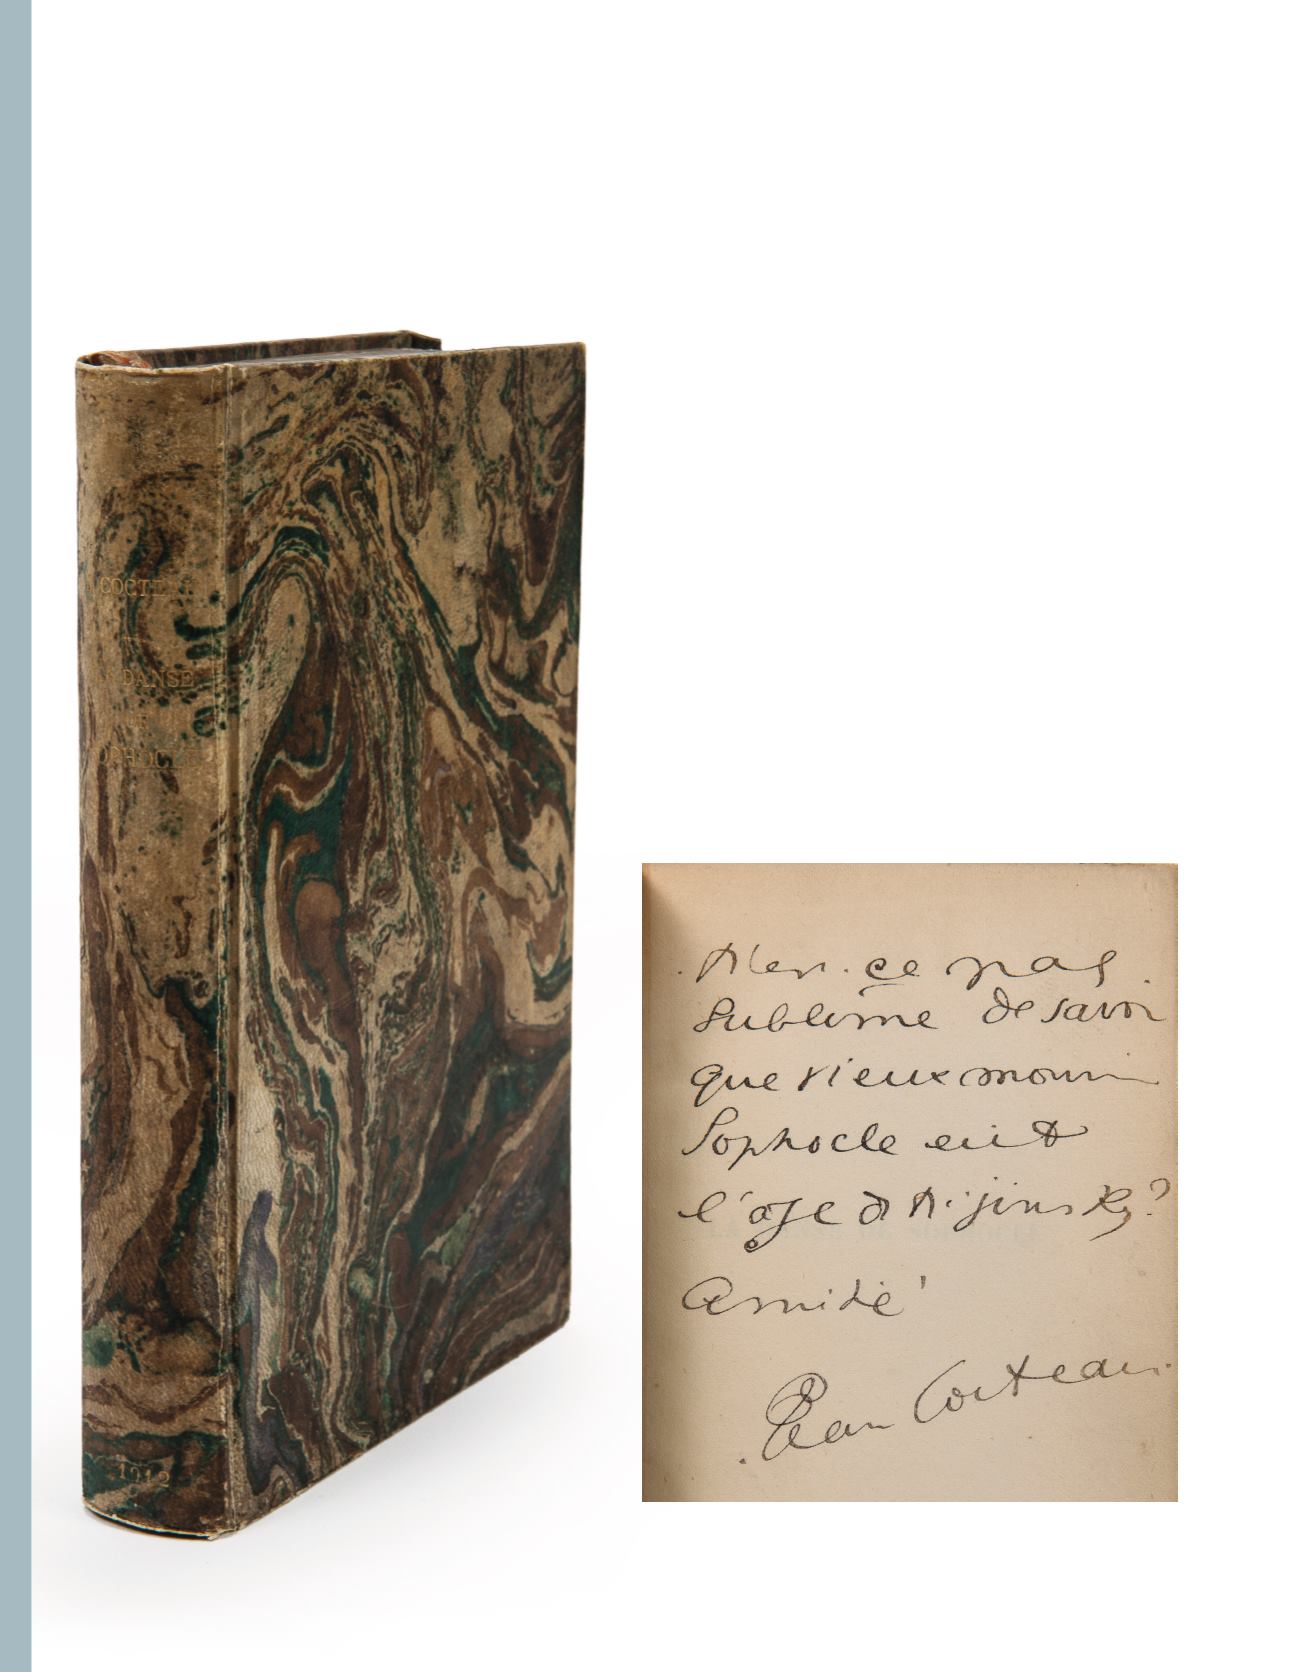 COCTEAU
DANSE
DE
OPHOCLE
1912
N'est-ce pas
sublime de savoir
que vieux
Sophocle eut
l'âge de Nijinsky?
Amitié
Jean Cocteau